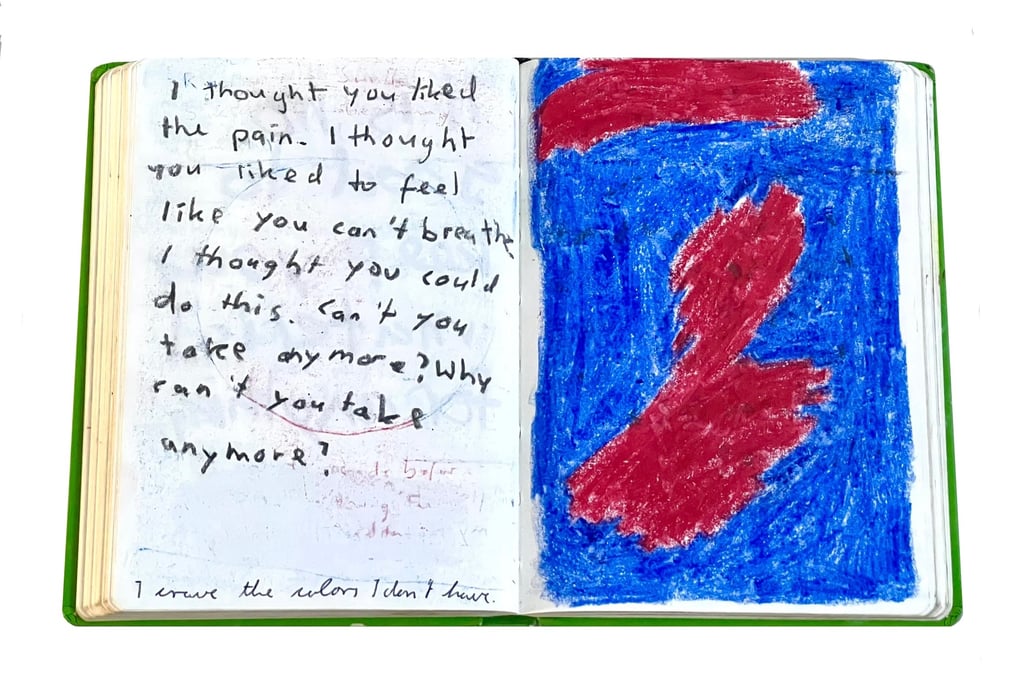 I thought you liked
the pain. I thought
you liked to feel
like you can't breathe
I thought you could
do this. Can't you
take any more? Why
can't you take
anymore?
I crave the colors I don't have.